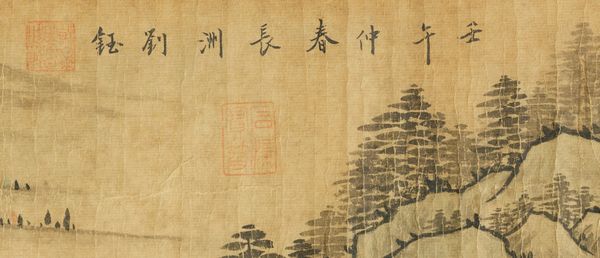 壬午仲春長洲劉鈺